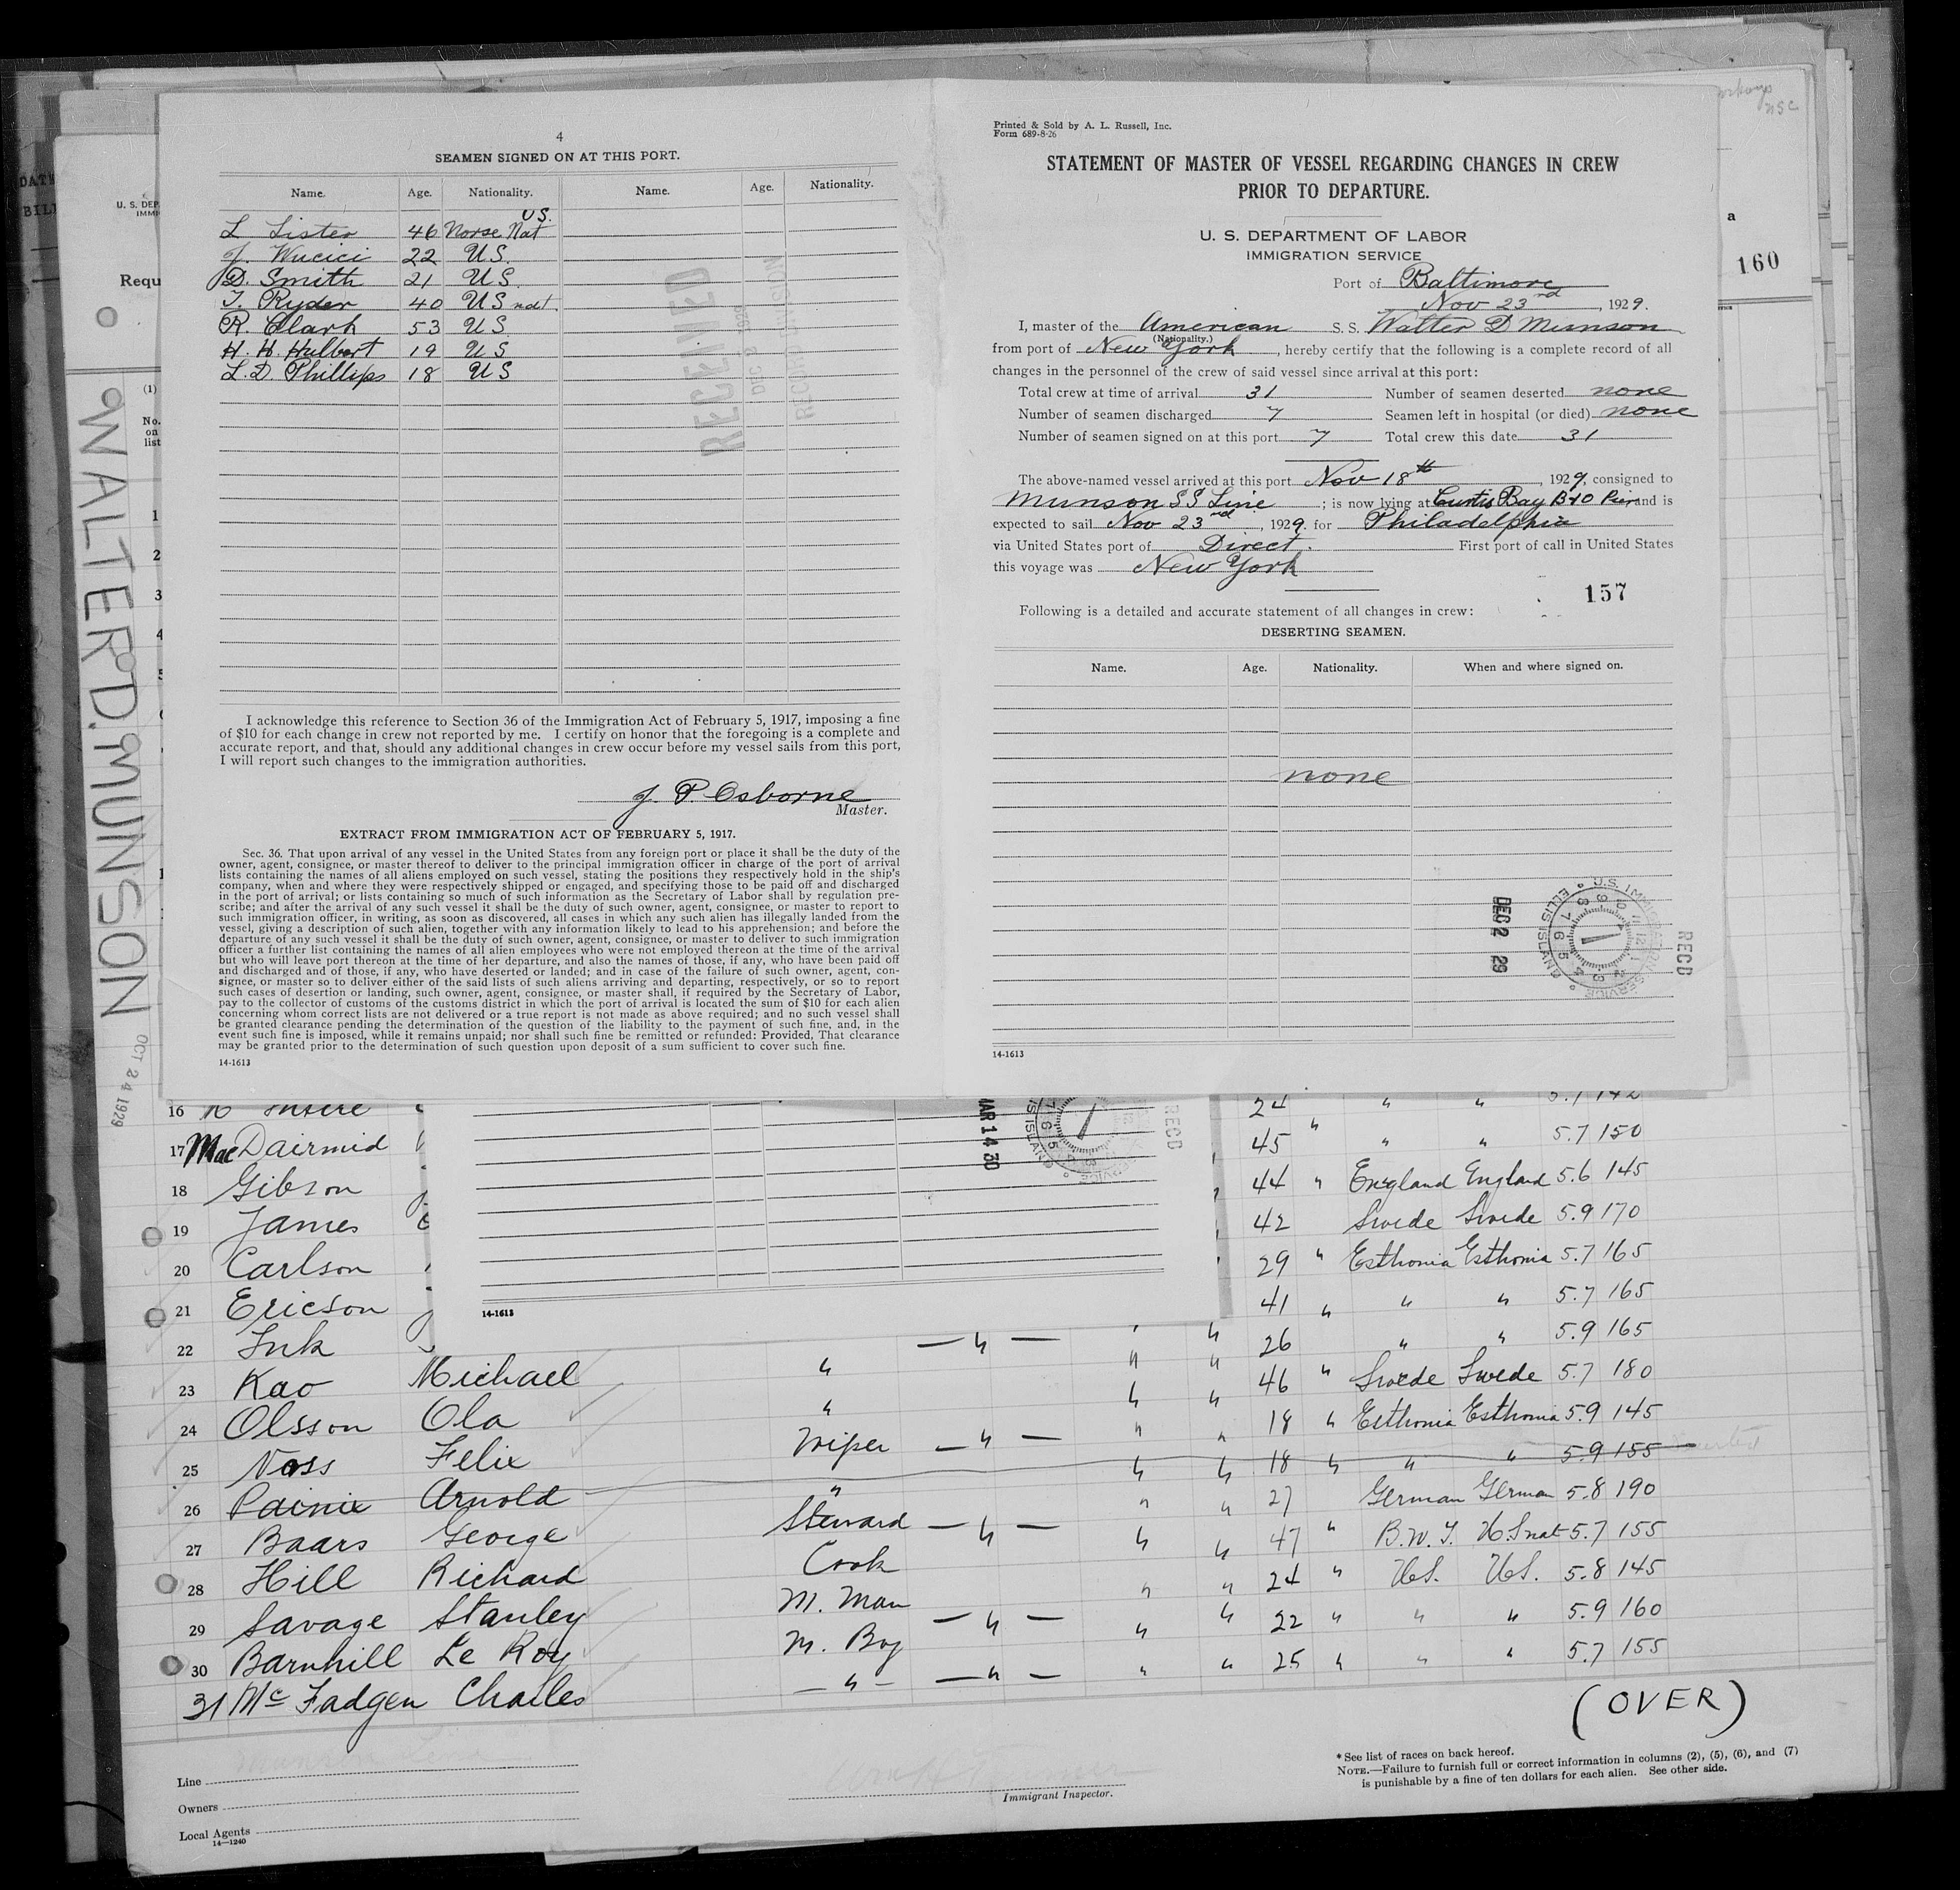 4
SEAMEN SIGNED ON AT THIS PORT.
Name. Age. Nationality. Name. Age. Nationality.
U S.
L Lister 46 Norse Nat
J. Wucici 22 U S.
D. Smith 21 U S.
T. Ryder 40 U S nat.
R. Clark 53 U S
H. H. Hulbert 19 U S
L. D. Phillips 18 U S
RECEIVED
I acknowledge this reference to Section 36 of the Immigration Act of February 5, 1917, imposing a fine
of $10 for each change in crew not reported by me. I certify on honor that the foregoing is a complete and
accurate report, and that, should any additional changes in crew occur before my vessel sails from this port,
I will report such changes to the immigration authorities.
J. P. Osborne
Master.
EXTRACT FROM IMMIGRATION ACT OF FEBRUARY 5, 1917.
Sec. 36. That upon arrival of any vessel in the United States from any foreign port or place it shall be the duty of the
owner, agent, consignee, or master thereof to deliver to the principal immigration officer in charge of the port of arrival
lists containing the names of all aliens employed on such vessel, stating the positions they respectively hold in the ship's
company, when and where they were respectively shipped or engaged, and specifying those to be paid off and discharged
in the port of arrival; or lists containing so much of such information as the Secretary of Labor shall by regulation pre-
scribe; and after the arrival of any such vessel it shall be the duty of such owner, agent, consignee, or master to report to
such immigration officer, in writing, as soon as discovered, all cases in which any such alien has illegally landed from the
vessel, giving a description of such alien, together with any information likely to lead to his apprehension; and before the
departure of any such vessel it shall be the duty of such owner, agent, consignee, or master to deliver to such immigration
officer a further list containing the names of all alien employees who were not employed thereon at the time of the arrival
but who will leave port thereon at the time of her departure, and also the names of those, if any, who have been paid off
and discharged and of those, if any, who have deserted or landed; and in case of the failure of such owner, agent, con-
signee, or master so to deliver either of the said lists of such aliens arriving and departing, respectively, or so to report
such cases of desertion or landing, such owner, agent, consignee, or master shall, if required by the Secretary of Labor,
pay to the collector of customs of the customs district in which the port of arrival is located the sum of $10 for each alien
concerning whom correct lists are not delivered or a true report is not made as above required; and no such vessel shall
be granted clearance pending the determination of the question of the liability to the payment of such fine, and, in the
event such fine is imposed, while it remains unpaid; nor shall such fine be remitted or refunded: Provided, That clearance
may be granted prior to the determination of such question upon deposit of a sum sufficient to cover such fine.
14-1613
Printed & Sold by A. L. Russell, Inc.
Form 689-8-26
STATEMENT OF MASTER OF VESSEL REGARDING CHANGES IN CREW
PRIOR TO DEPARTURE.
U. S. DEPARTMENT OF LABOR
IMMIGRATION SERVICE
Port of Baltimore
Nov 23rd, 1929.
I, master of the American S. S. Walter D Munson
(Nationality.)
from port of New York, hereby certify that the following is a complete record of all
changes in the personnel of the crew of said vessel since arrival at this port:
Total crew at time of arrival 31 Number of seamen deserted none
Number of seamen discharged 7 Seamen left in hospital (or died) none
Number of seamen signed on at this port 7 Total crew this date 31
The above-named vessel arrived at this port Nov 18th, 1929, consigned to
Munson S S Line; is now lying at Curtis Bay B+O Pier and is
expected to sail Nov 23rd, 1929. for Philadelphia
via United States port of Direct. First port of call in United States
this voyage was New York
157
Following is a detailed and accurate statement of all changes in crew:
DESERTING SEAMEN.
Name. Age. Nationality. When and where signed on.
none
DEC 2 29
U.S. IMMIGRATION SERVICE ELLIS ISLAND
RECD
14-1613
a
160
U. S. DEP
IMMI
Requ
(1)
No.
on
list
WALTER D. MUNSON
OCT 24 1929
MAR 14 30
RECD
14-1613
16 24 " "
17 MacDairmid 45 " " " 5.7 150
18 Gibson 44 " England England 5.6 145
19 James 42 Swede Swede 5.9 170
20 Carlson 29 " Esthonia Esthonia 5.7 165
21 Ericson 41 " " " 5.7 165
22 Ink 26 " " 5.9 165
23 Kao Michael " " " 46 " Swede Swede 5.7 180
24 Olsson Ola " " " 18 " Esthonia Esthonia 5.9 145
25 Noss Felix Wiper — " — " " 18 " " " 5.9 155
26 Painix Arnold " " " 27 German German 5.8 190
27 Baars George Steward — " — " " 47 " B.W.I. U.S nat 5.7 155
28 Hill Richard Cook " " 24 " U.S. U.S. 5.8 145
29 Savage Stanley M. Man — " — " " 22 " " " 5.9 160
30 Barnhill Le Roy M. Boy " " 25 " " " 5.7 155
31 Mc Fadgen Charles — " — — " —
(OVER)
Line
Owners
Local Agents
14—1240
Immigrant Inspector.
* See list of races on back hereof.
NOTE.—Failure to furnish full or correct information in columns (2), (5), (6), and (7)
is punishable by a fine of ten dollars for each alien. See other side.